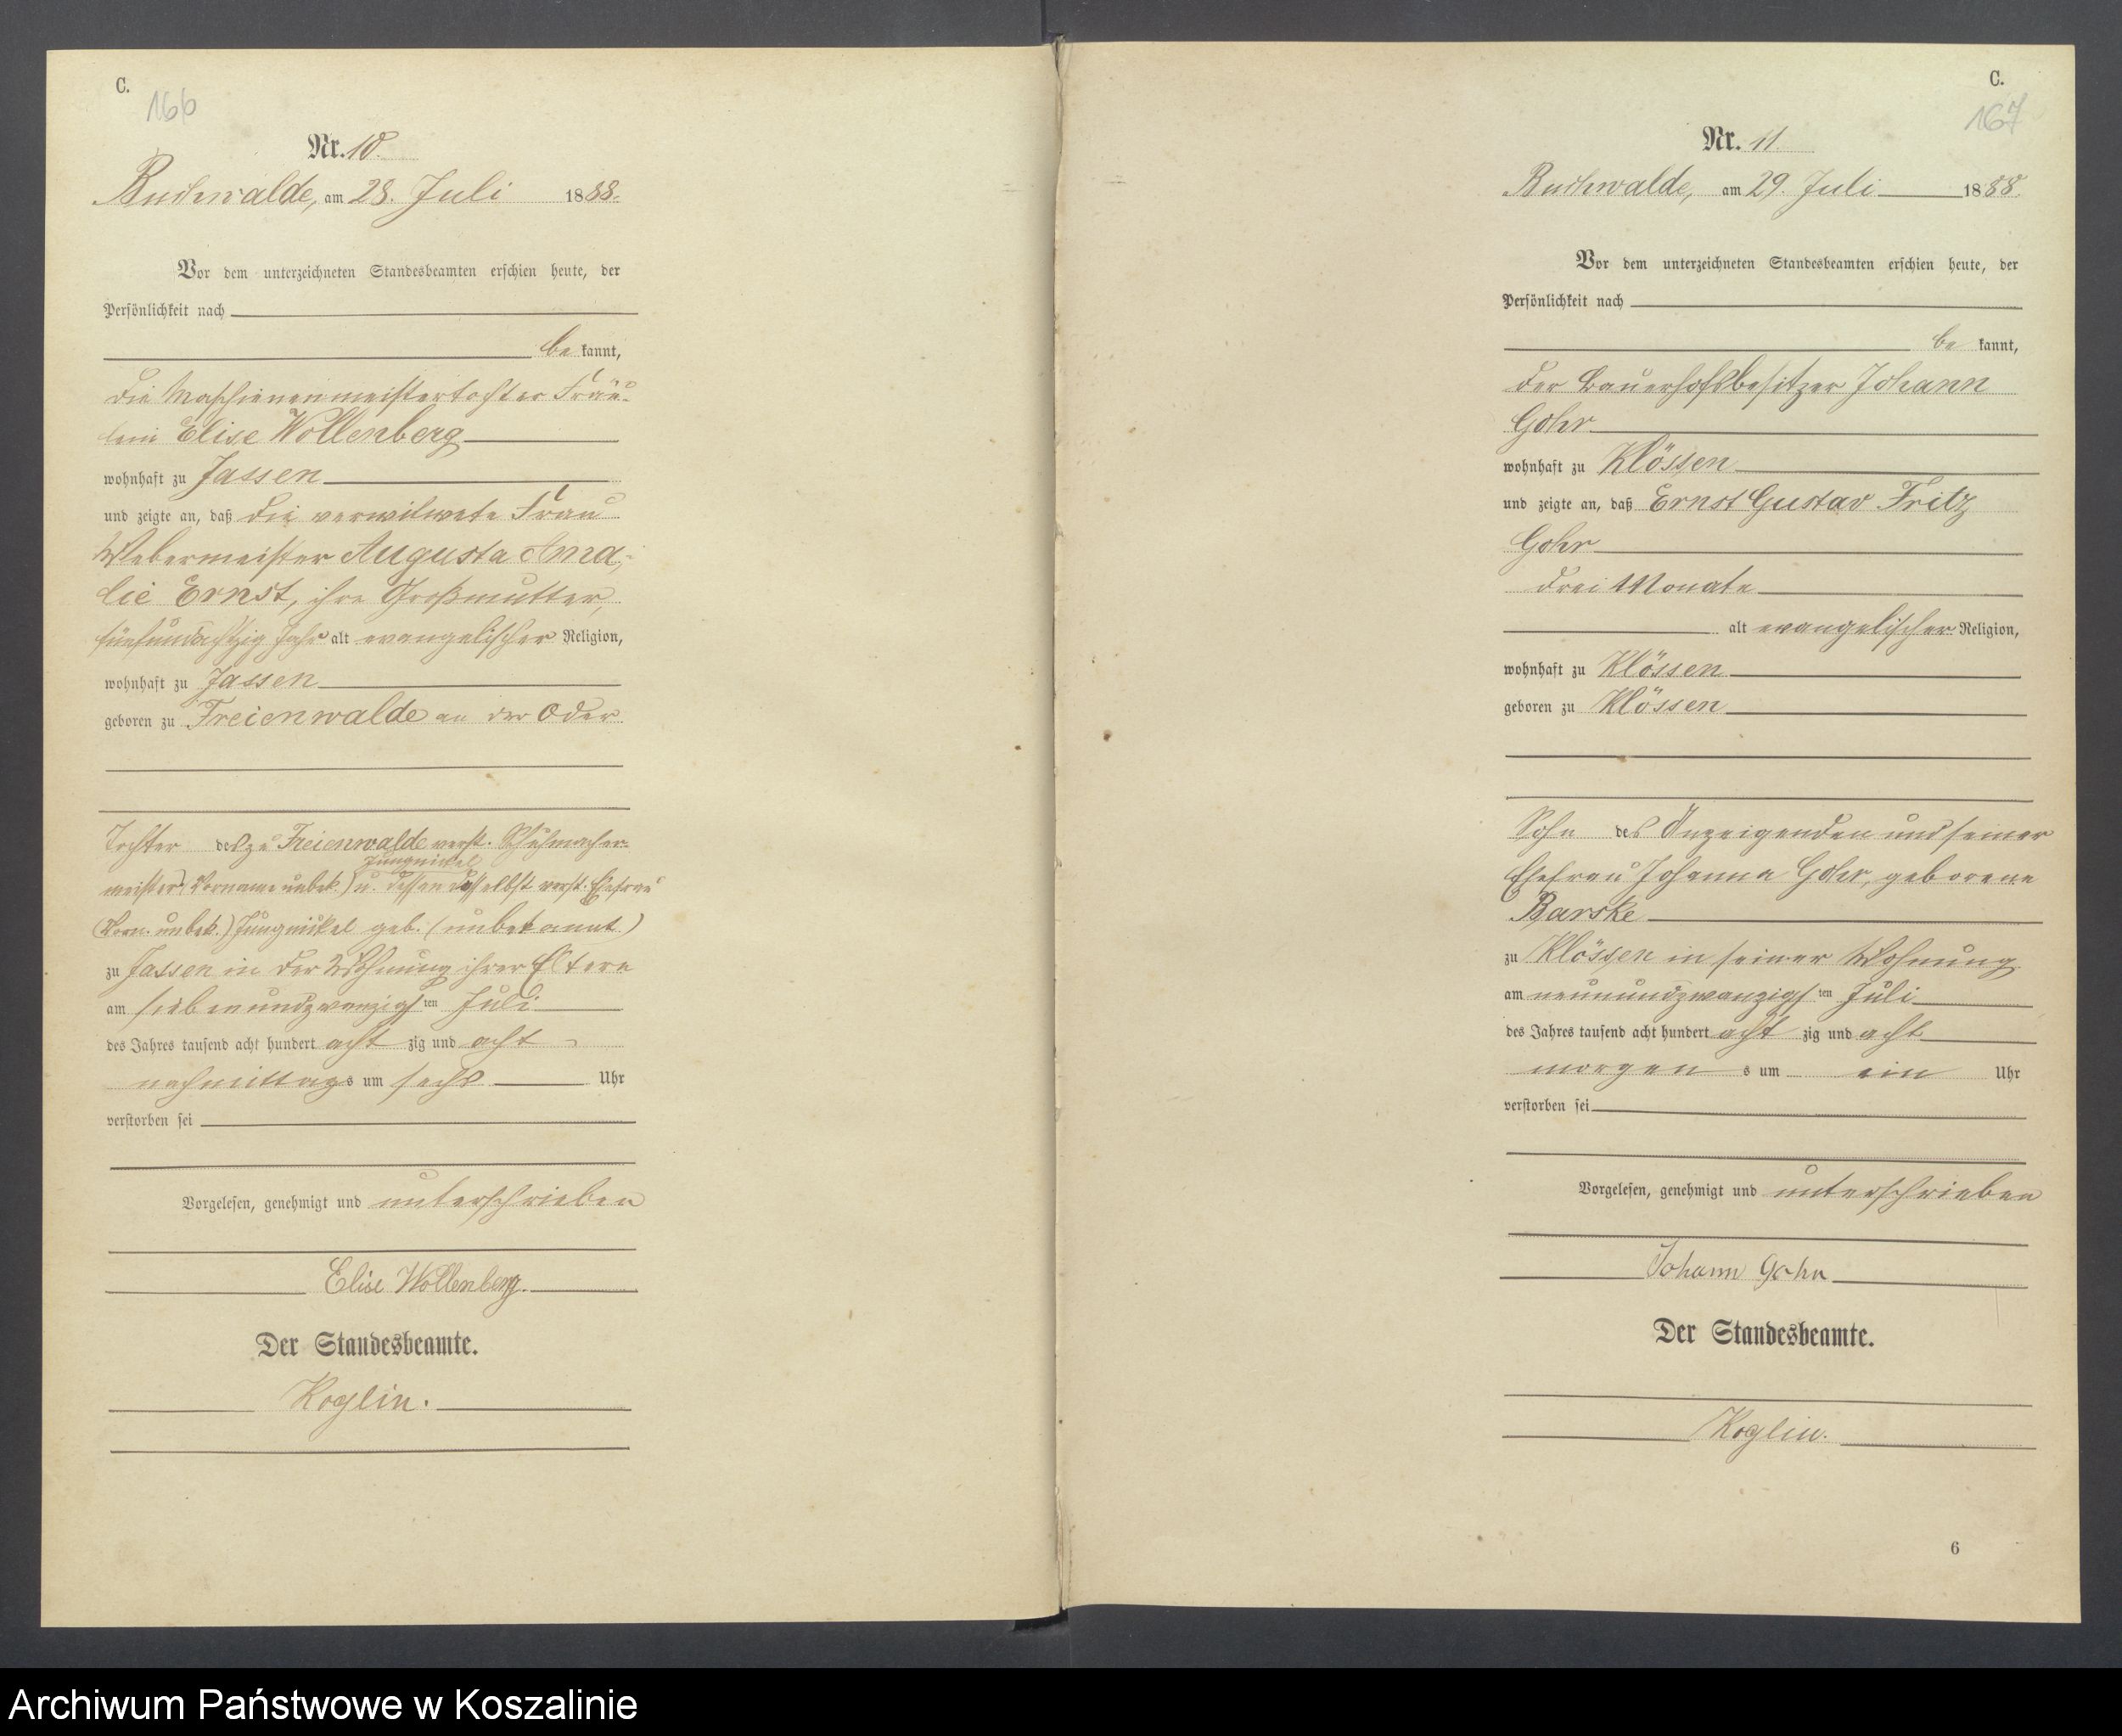 C.
166
Nr. 10.
Buchwalde, am 28. Juli 1888.
Vor dem unterzeichneten Standesbeamten erschien heute, der
Persönlichkeit nach
be kannt,
die Maschienenmeistertochter Fräu-
lein Elise Wollenberg
wohnhaft zu Jassen
und zeigte an, daß die verwitwete Frau
Webermeister Augusta Ama-
lie Ernst, ihre Großmutter,
fünfundachtzig Jahr alt evangelischer Religion,
wohnhaft zu Jassen
geboren zu Freienwalde an der Oder
Tochter des zu Freienwalde verst. Schuhmacher-
Jungnickel
meisters (Vorname unbek.) u. dessen daselbst verst. Ehefrau
(Vorn. unbek.) Jungnickel geb. (unbekannt)
zu Jassen in der Wohnung ihrer Eltern
am siebenundzwanzigsten Juli
des Jahres tausend acht hundert acht zig und acht
nachmittags um sechs Uhr
verstorben sei
Vorgelesen, genehmigt und unterschrieben
Elise Wollenberg.
Der Standesbeamte.
Koglin.
C.
167
Nr. 11.
Buchwalde, am 29. Juli 1888.
Vor dem unterzeichneten Standesbeamten erschien heute, der
Persönlichkeit nach
be kannt,
der Bauerhofsbesitzer Johann
Gohr
wohnhaft zu Klössen
und zeigte an, daß Ernst Gustav Fritz
Gohr
drei Monate
alt evangelischer Religion,
wohnhaft zu Klössen
geboren zu Klössen
Sohn des Anzeigenden und seiner
Ehefrau Johanna Gohr, geborene
Barske
zu Klössen in seiner Wohnung
am neunundzwanzigsten Juli
des Jahres tausend acht hundert acht zig und acht
morgen s um ein Uhr
verstorben sei
Vorgelesen, genehmigt und unterschrieben
Johann Gohr
Der Standesbeamte.
Koglin.
6
Archiwum Państwowe w Koszalinie